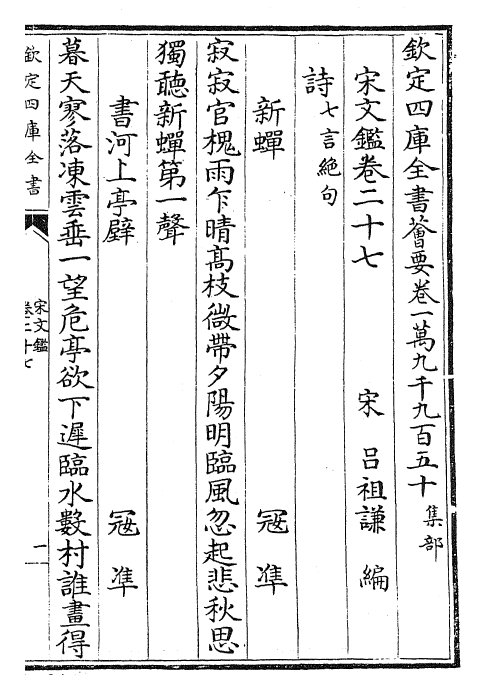 欽定四庫全書薈要卷一萬九千九百五十 集部
宋文鑑卷二十七
宋 呂祖謙 編
詩七言絶句
新蟬 冦準
寂寂官槐雨乍晴高枝微帶夕陽明臨風忽起悲秋思
獨聽新蟬第一聲
書河上亭壁 冦準
暮天寥落凍雲垂一望危亭欲下遲臨水數村誰畫得
欽定四庫全書
宋文鑑
卷二十七
一